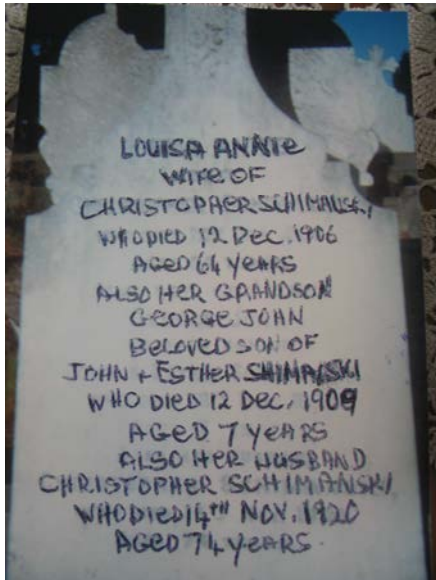 LOUISA ANNIE
WIFE OF
CHRISTOPHER SCHIMANSKI
WHO DIED 12 DEC. 1906
AGED 64 YEARS
ALSO HER GRANDSON
GEORGE JOHN
BELOVED SON OF
JOHN + ESTHER SHIMANSKI
WHO DIED 12 DEC. 1909
AGED 7 YEARS
ALSO HER HUSBAND
CHRISTOPHER SCHIMANSKI
WHO DIED 14TH NOV. 1920
AGED 74 YEARS.